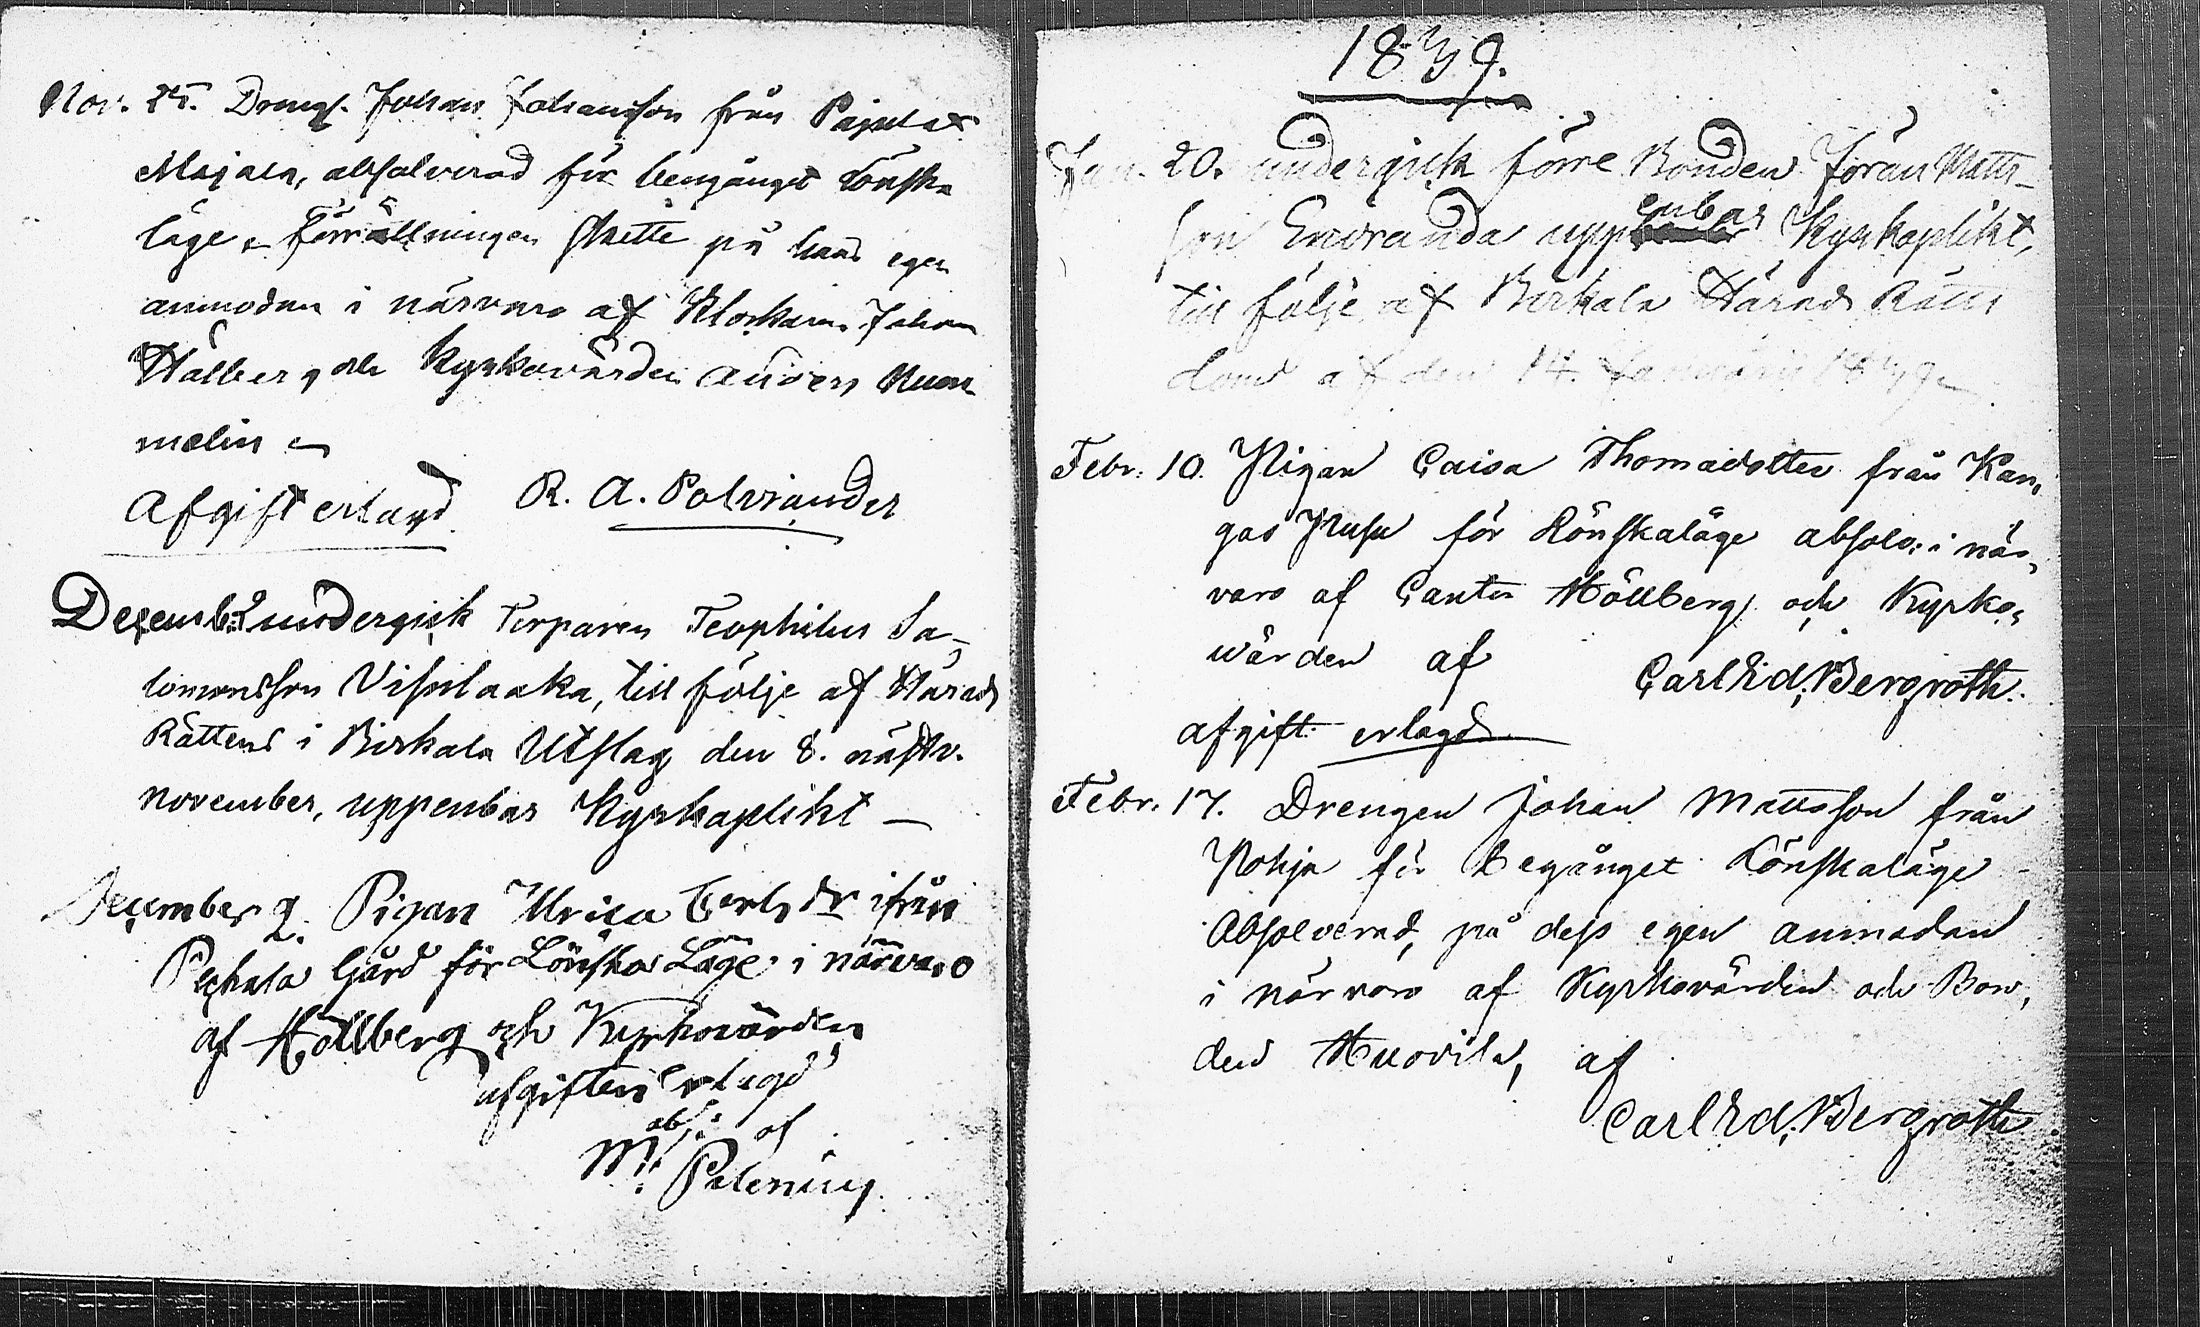 Nov. 25. Drengs. Johan Johansson från Pajula
Majala, absolverad för begånget Lönska
läge. Förrättningen skette på hans egen
anmodan i närvaro af Klockaren Johan
Hällberg och Kyrkovärden Anders Num
melin
Afgift erlagd R. A. Polviander
Decemb: 2 undergick Torparen Teophilus Sa
lomonsson Vihilaaka, till följe af Härads
Rättens i Birkala Utslag den 8. nästv.
november, uppenbar Kyrkoplikt —
December 9. Pigan Ulrica Carls dr ifrån
Gård för Lönska Läge i närvaro
af Hällberg och Kyrkovärden
afgiften erlagd
abs: af
M: Polenius
1839.
Jan. 20. undergick förre Bonden Jöran Matts-
son Envranda uppenbar Kyrkoplikt,
till följe af Birkala Härads Rätts
dom af den 14. Januarii 1839
Febr. 10. Pigan Caisa Thomasdotter från Kan,
gas för Lönskaläge absolv: i när,
varo af Cantor Hällberg och Kyrko,
wärden af Carl Ed. Bergroth.
afgift erlagd
Febr. 17. Drengen Johan Mattsson från
Pohja för begånget Lönskaläge
Absolverad, på dess egen anmodan
i närvaro af Kyrkovärden och Bon,
den Huovila, af
Carl Ed. Bergroth